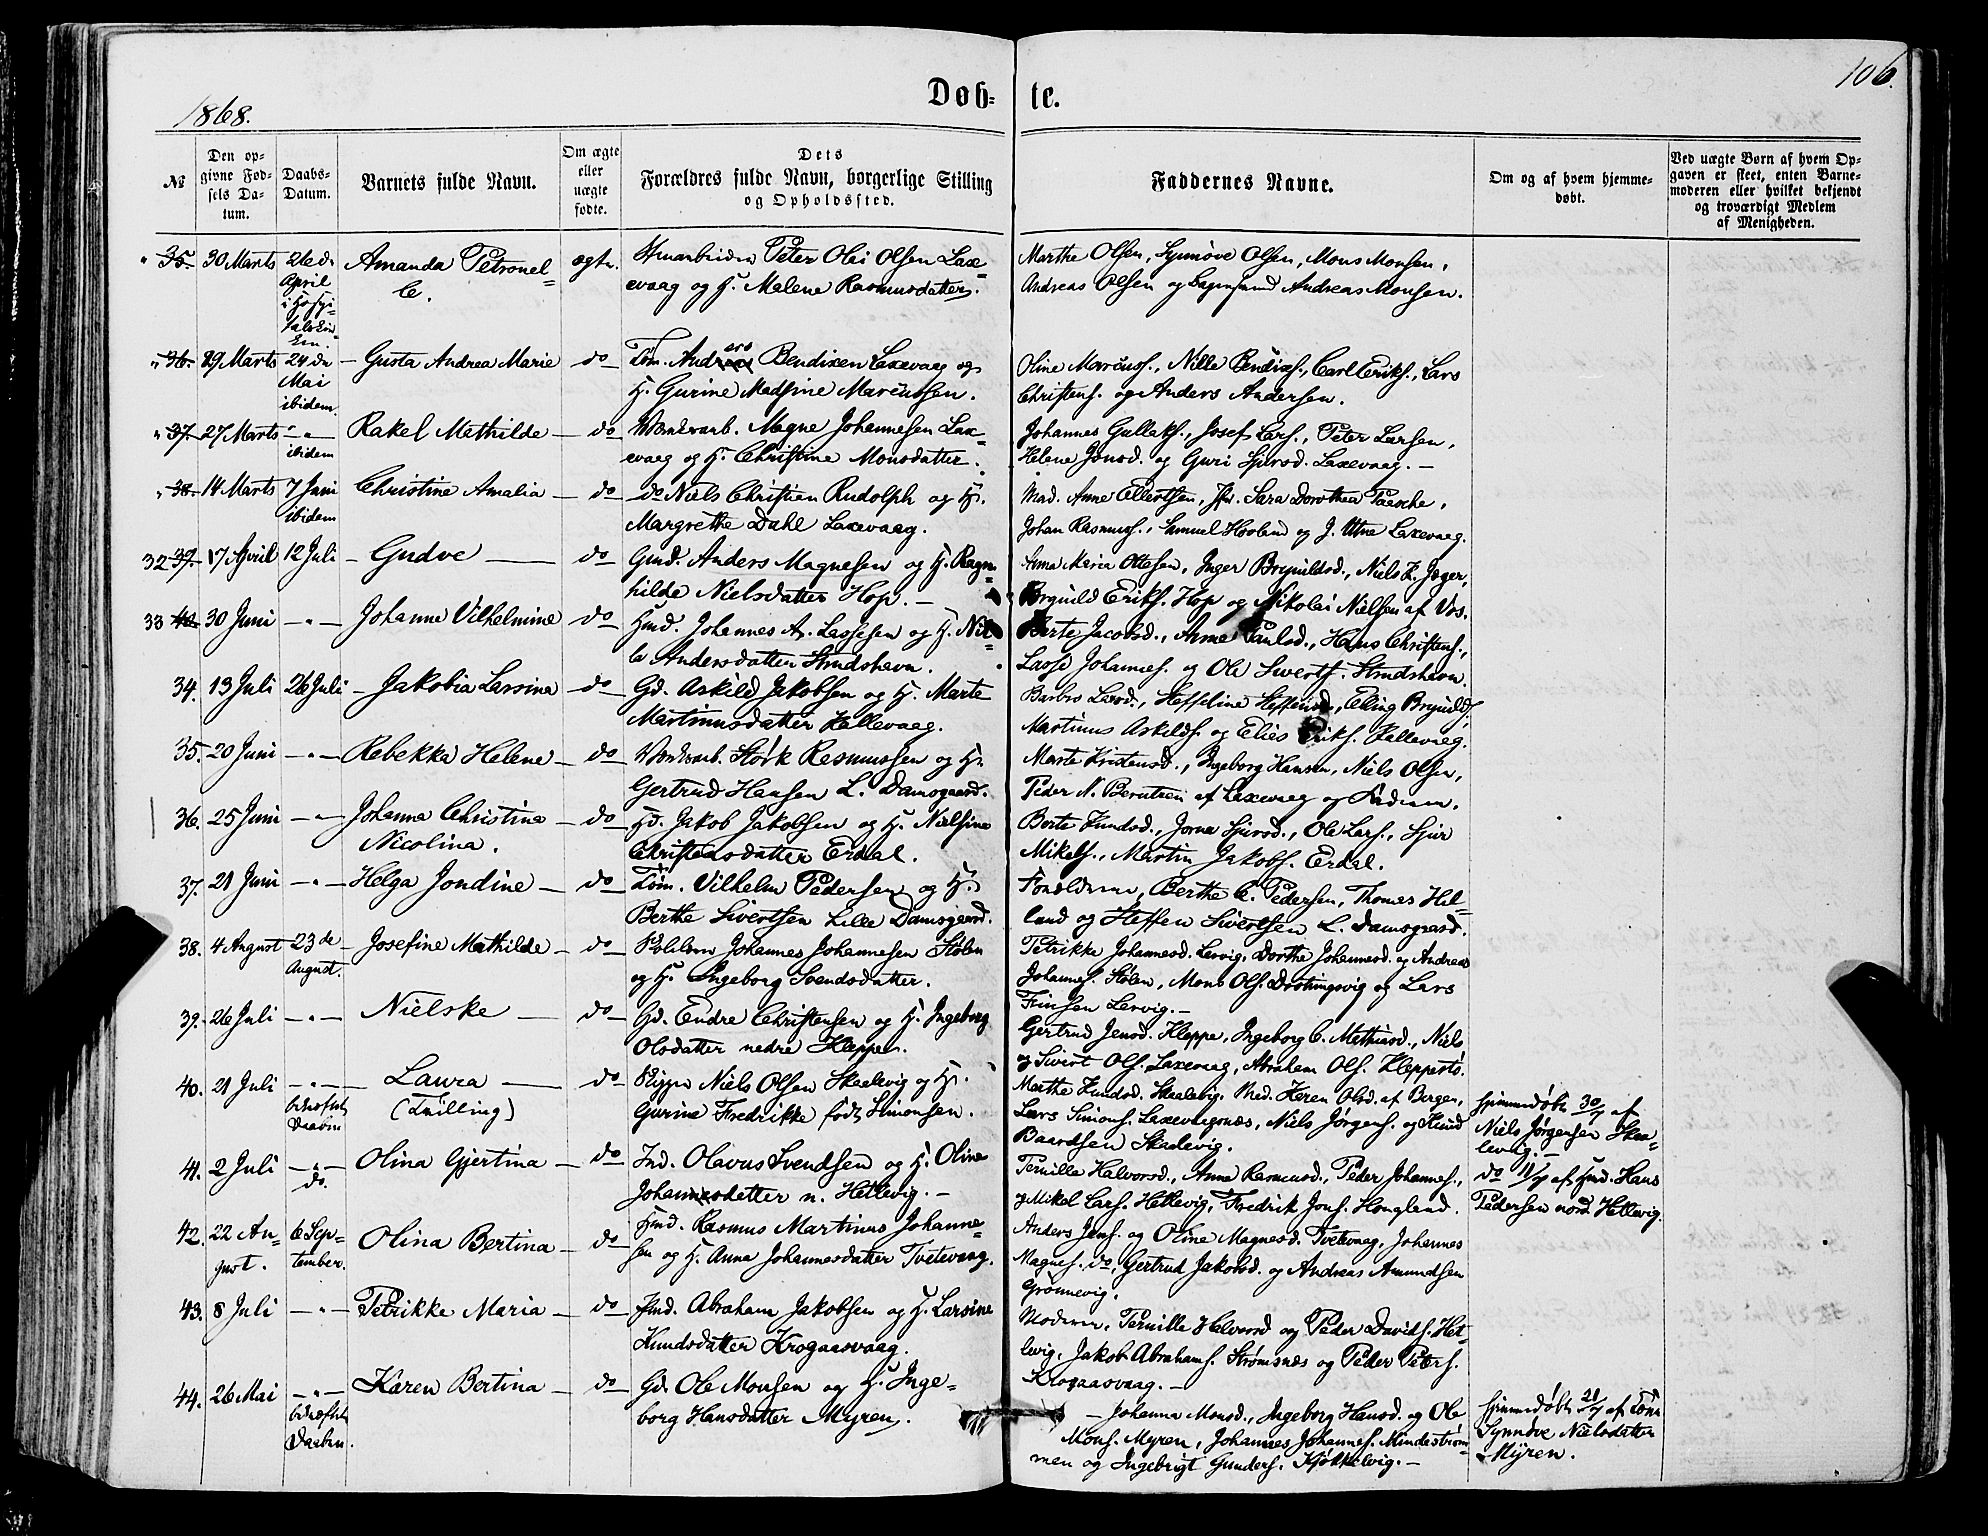 106.
1868.
Døb-te.
№
Den op-
givne Fød-
sels Da-
tum.
Daabs-
Datum.
Barnets fulde Navn.
Om ægte
eller
uægte
fødte.
Dets
Forældres fulde Navn, borgerlige Stilling
og Opholdssted.
Faddernes Navne.
Om og af hvem hjemme-
døbt.
Ved uægte Børn af hvem Op-
gaven er skeet, enten Barne-
moderen eller hvilket bekjendt
og troværdigt Medlem
af Menigheden.
" 35. 30 Marts 26 d. Amanda Petronel- ægte. Peter Olai Olsen Laxe-
April le. vaag og H. Malene Rasmusdatter.
Marthe Olsen, Synnøve Olsen, Mons Monsen,
Andreas Olsen og Andreas Monsen.
" 36. 29 Marts 24 de Gusta Andrea Marie do Tøm. Andreas Bendixen Laxevaag og
Mai H. Gurine Madsine Marcussen.
ibidem.
Oline Marcuss., Nille Bendixs., Carl Eriks., Lars
Christens. og Anders Andersen.
" 37. 27 Marts — " — Rakel Mathilde — do Magne Johannesen Lax-
ibidem evaag og H. Christine Monsdatter.
Johannes Gullaks., Josef Lars., Peter Larsen,
Helene Jonsd. og Guri Sjursd. Laxevaag. —
" 38. 14 Marts 7 Juni Christine Amalia — do do Niels Christian Rudolph og H.
ibidem Margrethe Dahl Laxevaag.
Mad. Anne Ellertsen, Jfr. Sara Dorothea Paasche,
Johan Rasmuss., Samuel Hovland og J. Utne Laxevaag.
32 39. 17 April 12 Juli — Gudve — do Gmd. Anders Magnesen og H. Ragn-
hilde Nielsdatter Hop. —
Anna Maria Ottesen, Inger Brynildsd., Niels K. Jæger,
Brynild Eriks. Hop og Nikolai Nielsen af Vos.
33 40. 30 Juni — " — Johanne Vilhelmine do Hmd. Johannes A. Lassesen og H. Nil-
le Andersdatter Strudshavn.
Berte Jacobsd., Anne Paulsd., Hans Christens.,
Lasse Johannes. og Ole Siverts. Strudshavn.
34. 13 Juli 26 Juli — Jakobia Larsina — do Gd. Askild Jakobsen og H. Marte
Martinusdatter Kallevaag.
Barbro Larsd., Steffeline Steffensd., Elling Brynilds.
Martinus Askilds. og Elias Eriks. Kallevaag.
35. 20 Juni — " — Rebekka Helene — do Størk Rasmussen og H.
Gertrud Hansen L. Damsgaard.
Marte Kristensd., Ingeborg Hansen, Niels Olsen,
Peder N. Berntsen af Laxevaag og Faderen.
36. 25 Juni — " — Johanna Christina — do Gd. Jakob Jakobsen og H. Nielsine
Nicolina. Christensdatter Erdal.
Berte Knudsd., Jorna Sjursd., Ole Lars., Sjur
Mikels., Martin Jakobs. Erdal.
37. 21 Juni — " — Helga Jondine — do Tøm. Vilhelm Pedersen og H.
Berthe Sivertsen Lille Damsgaard.
Forældrene, Berthe C. Pedersen, Thomas Hil-
land og Steffen Sivertsen L. Damsgaard.
38. 4 August 23 de — Josefine Mathilde — do Johannes Johannesen Stølen
August. og H. Ingeborg Svendsdatter.
Petrikke Johannesd. Lervig, Dorthe Johannesd. og Andreas
Johannes. Stølen, Mons Ols. Drotningsvig og Lars
Finsen Lervig. —
39. 26 Juli — " — Nielske — do Gd. Endre Christensen og H. Ingeborg
Olsdatter nedre Kleppen.
Gertrud Jensd. Kleppe, Ingeborg C. Mathiasd., Niels
og Sivert Ols. Laxevaag, Abraham Ols. Kleppestø.
40. 21 Juli — " — Laura — do Niels Olsen Skaalevig og H.
(Tvilling) Gurine Fredrikke født Simonsen.
Marthe Knudsd. Skaalevig, Mad. Karen Olsd. af Bergen,
Lars Simons. Laxevaagnæs, Niels Jørgens. og Knud
Baardsen Skaalevig.
hjemmedøbt 30/7 af
Niels Jørgensen Skaa-
levig. —
41. 2 Juli — " — Olina Gjertina — do Olavus Svendsen og H. Oline
do. Johannesdatter n. Hetlevig. —
Pernille Halvorsd., Anna Rasmusd., Peder Johannes.,
Mikel Lars. Hetlevig, Fredrik Jons. Haugland.
do 11/7 af Hmd. Hans
Pedersen nord. Hetlevig.
42. 22 Au- 6 Sep- Olina Bertina — do Hmd. Rasmus Martinus Johanne-
gust. tember. sen og H. Anna Johannesdatter Tvetevaag.
Anders Jens. og Oline Magnesd. Tvetevaag, Johannes
Magnes. do, Gertrud Jakobsd. og Andreas Amundsen
Grønnevig.
43. 8 Juli — " — Petrikke Maria — do Hmd. Abraham Jakobsen og H. Larsine
Knudsdatter Krogaasvaag.
Moderen, Pernille Halvorsd. og Peder Davids. Het-
levig, Jakob Abrahams. Strømsnes og Peder Peters.
Krogaasvaag. —
44. 26 Mai — " — Karen Bertina — do Gd. Ole Monsen og H. Inge-
borg Hansdatter Myren.
— Johanna Monsd., Ingeborg Hansd. og Ole
Mons. Myren, Johannes Johannes. Mindestrøm-
men og Ingebrigt Gunders. Kjøkkelvig. —
hjemmedøbt 21/7 af
Synnøve Nielsdatter
Myren.